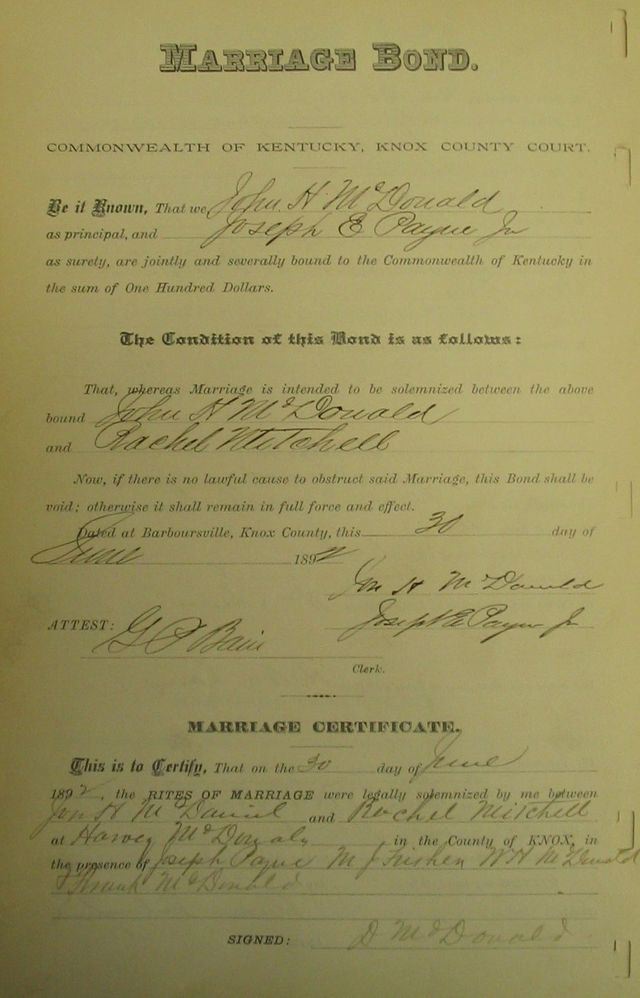 MARRIAGE BOND.
COMMONWEALTH OF KENTUCKY, KNOX COUNTY COURT.
Be it Known, That we, John H. McDonald
as principal, and Joseph E Payne Jr
as surety, are jointly and severally bound to the Commonwealth of Kentucky in
the sum of One Hundred Dollars.
The Condition of this Bond is as follows:
That, whereas Marriage is intended to be solemnized between the above
bound John H McDonald
and Rachel Mitchell
Now, if there is no lawful cause to obstruct said Marriage, this Bond shall be
void; otherwise it shall remain in full force and effect.
Dated at Barboursville, Knox County, this 30 day of
June 1892
Jon H McDonald
ATTEST: Joseph E Payne Jr
Clerk.
MARRIAGE CERTIFICATE.
This is to Certify, That on the 30 day of June
1892, the RITES OF MARRIAGE were legally solemnized by me between
Jon H McDaniel and Rachel Mitchell
at Harvey McDonals in the County of KNOX, in
the presence of Joseph Payne M J W H McDonald
Frank McDonald
SIGNED: D McDonald